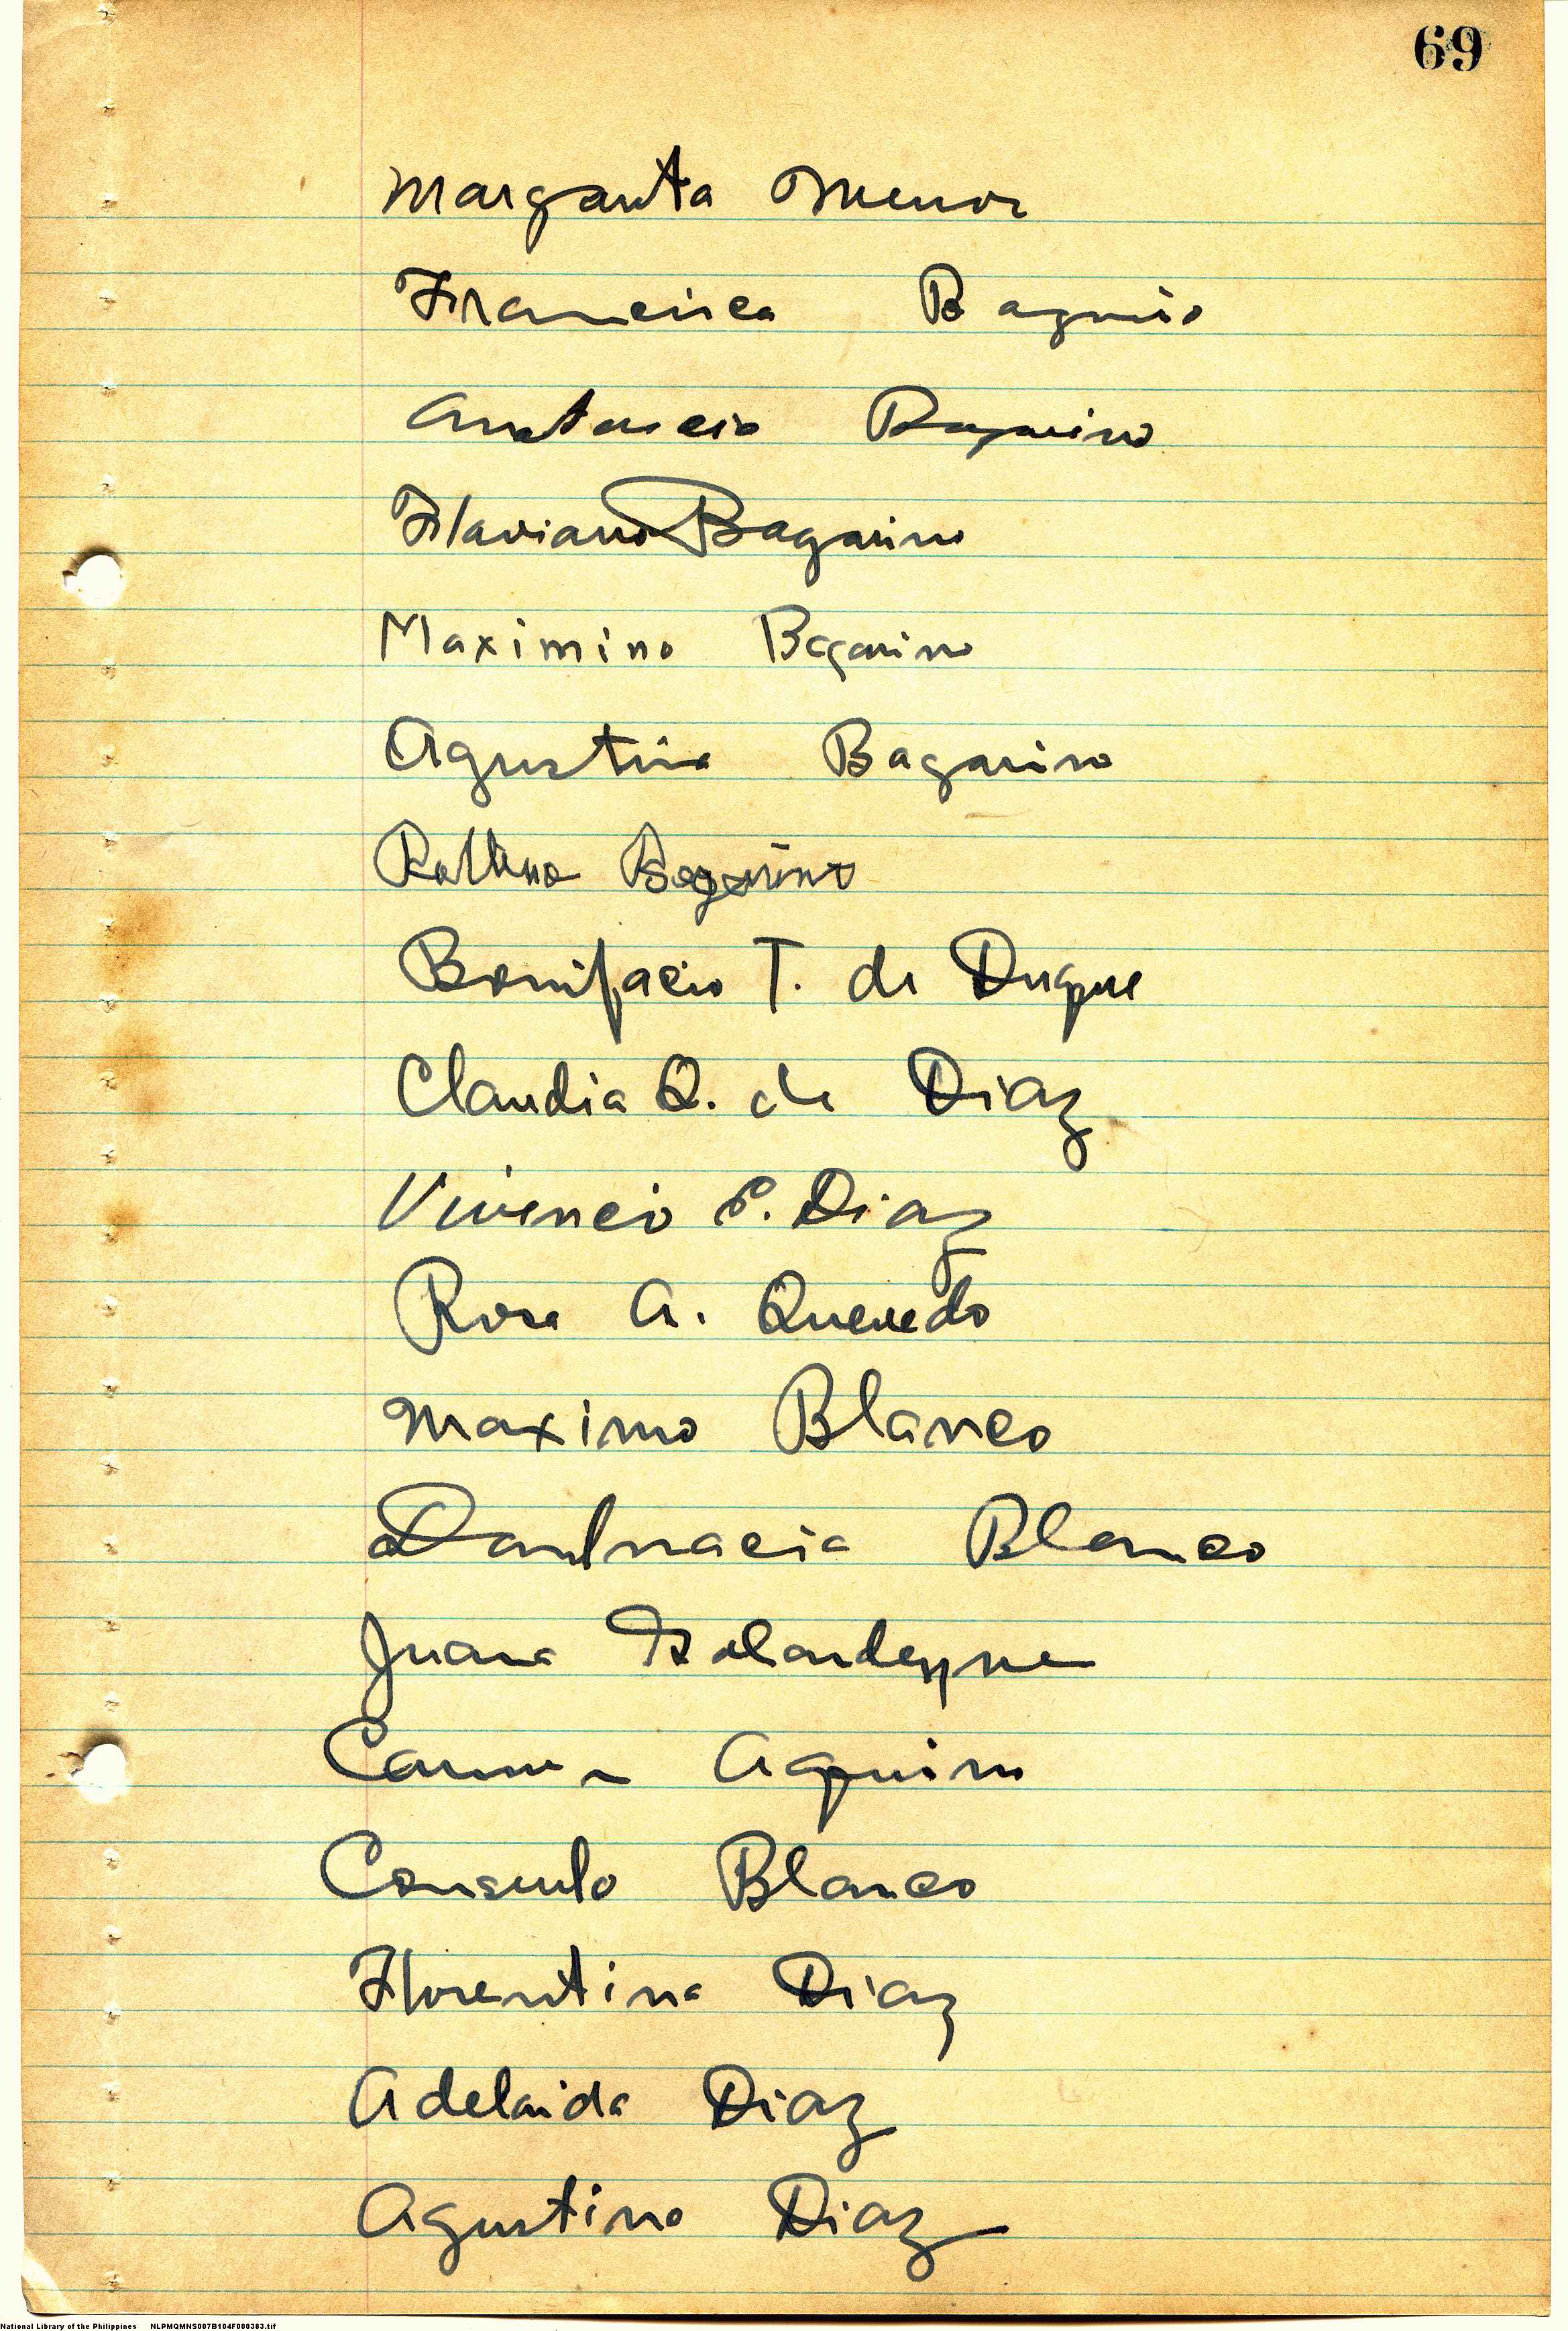 69
Margarita Menor
Francisca Baguio
Anatacio Bagarino
Flaviano Bagarino
Maximino Bagarino
Agustina Bagarino
Bagarino
Bonifacio T. de Duque
Claudia Q. de Diaz
Vivencio P. Diaz
Rosa A. Quevedo
Maximo Blanco
Blanco
Juana
Carmen Aquino
Consuelo Blanco
Florentina Diaz
Adelaida Diaz
Agustino Diaz
National Library of the Philippines NLPMQMNS007B104F000383.tif